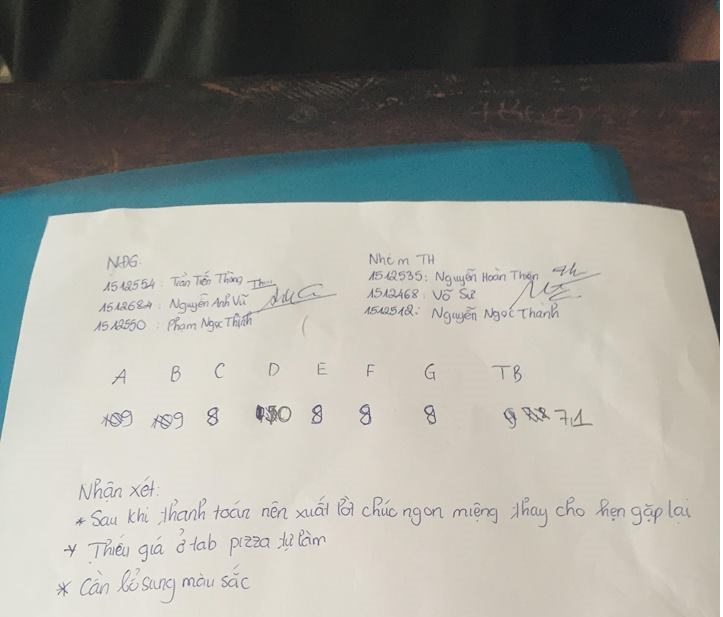 NĐG:
1512554 : Trần Tiến Thông
1512684 : Nguyễn Anh Vũ
1512550 : Phạm Ngọc Thịnh
Nhóm TH
1512535: Nguyễn Hoàn Thiện
1512468 : Võ Sư
1512512: Nguyễn Ngọc Thành
A B C D E F G TB
9 9 8 0 8 8 8 7,1
Nhận xét:
* Sau khi thanh toán nên xuất lời chúc ngon miệng thay cho hẹn gặp lại
* Thiếu giá ở tab pizza tự làm
* Cần bổ sung màu sắc